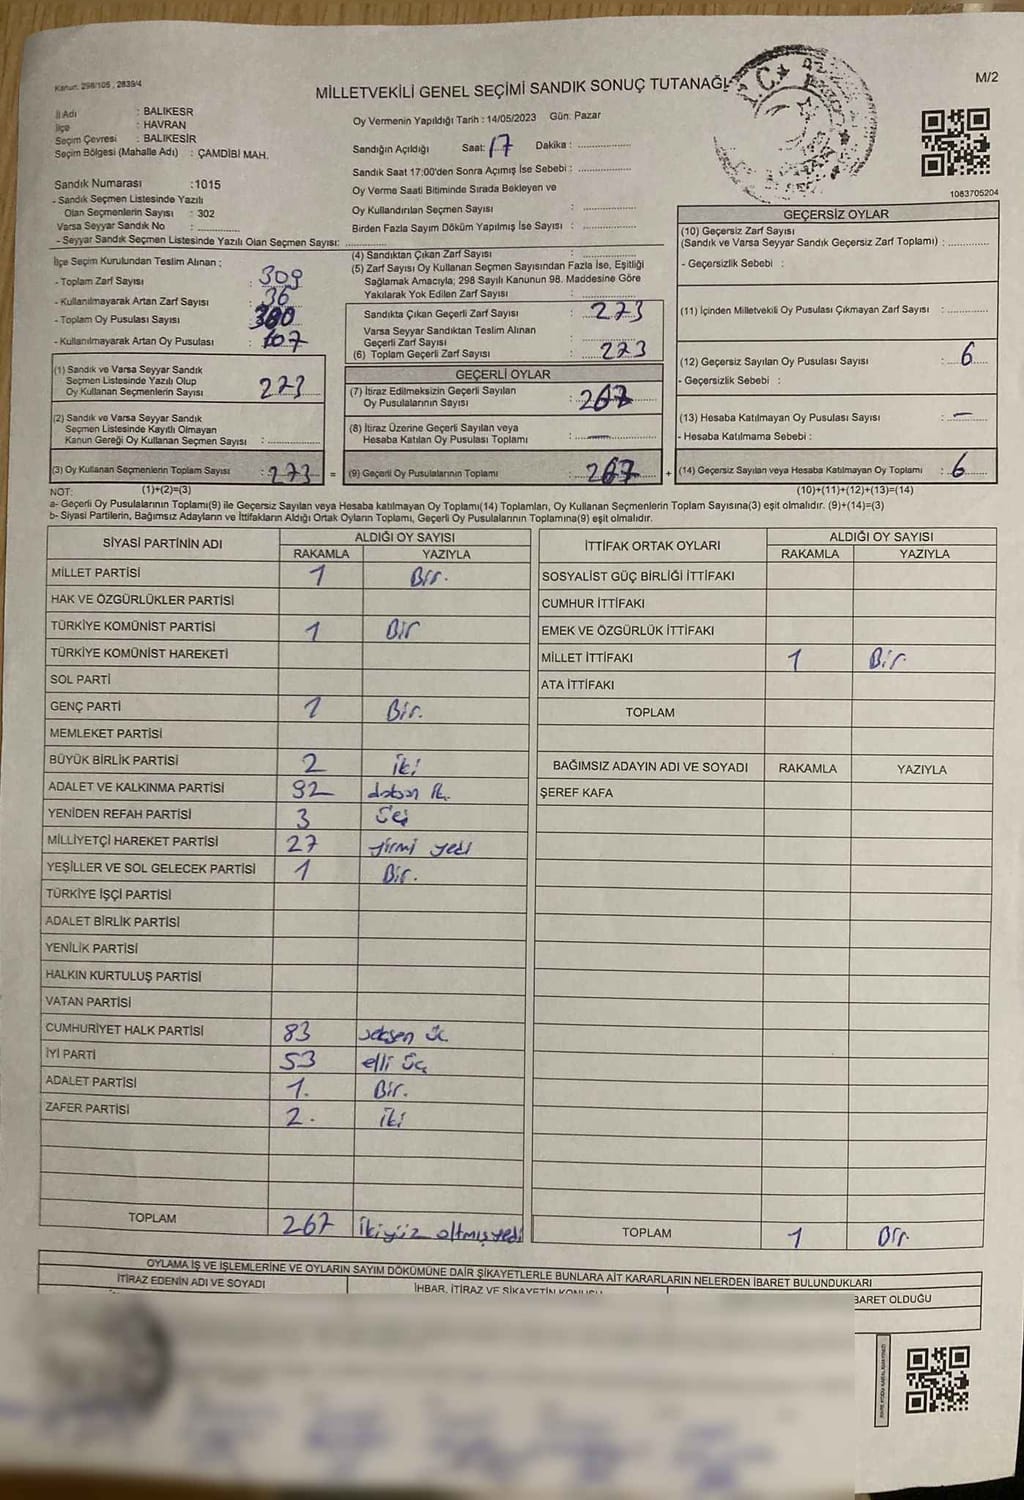 Kanun. 298/105 , 2839/4
MİLLETVEKİLİ GENEL SEÇİMİ SANDIK SONUÇ TUTANAĞI
M/2
T.C.
İl Adı : BALIKESR
İlçe : HAVRAN
Seçim Çevresi : BALIKESİR
Seçim Bölgesi (Mahalle Adı) : ÇAMDİBİ MAH.
Sandık Numarası :1015
- Sandık Seçmen Listesinde Yazılı
Olan Seçmenlerin Sayısı : 302
Varsa Seyyar Sandık No : ..............
- Seyyar Sandık Seçmen Listesinde Yazılı Olan Seçmen Sayısı: ..............
Oy Vermenin Yapıldığı Tarih : 14/05/2023 Gün: Pazar
Sandığın Açıldığı Saat: 17 Dakika : ..............
Sandık Saat 17:00'den Sonra Açımış İse Sebebi : ..............
Oy Verme Saati Bitiminde Sırada Bekleyen ve
Oy Kullandırılan Seçmen Sayısı : ..............
Birden Fazla Sayım Döküm Yapılmış İse Sayısı : ..............
1083705204
İlçe Seçim Kurulundan Teslim Alınan ;
- Toplam Zarf Sayısı : 309
- Kullanılmayarak Artan Zarf Sayısı : 36
- Toplam Oy Pusulası Sayısı : 380
- Kullanılmayarak Artan Oy Pusulası : 107
(1) Sandık ve Varsa Seyyar Sandık
Seçmen Listesinde Yazılı Olup
Oy Kullanan Seçmenlerin Sayısı : 273
(2) Sandık ve Varsa Seyyar Sandık
Seçmen Listesinde Kayıtlı Olmayan
Kanun Gereği Oy Kullanan Seçmen Sayısı : ..............
(3) Oy Kullanan Seçmenlerin Toplam Sayısı : 273 =
(1)+(2)=(3)
(4) Sandıktan Çıkan Zarf Sayısı : ..............
(5) Zarf Sayısı Oy Kullanan Seçmen Sayısından Fazla İse, Eşitliği
Sağlamak Amacıyla; 298 Sayılı Kanunun 98. Maddesine Göre
Yakılarak Yok Edilen Zarf Sayısı : ..............
Sandıkta Çıkan Geçerli Zarf Sayısı : 273
Varsa Seyyar Sandıktan Teslim Alınan
Geçerli Zarf Sayısı : ..............
(6) Toplam Geçerli Zarf Sayısı : 273
GEÇERLİ OYLAR
(7) İtiraz Edilmeksizin Geçerli Sayılan
Oy Pusulalarının Sayısı : 267
(8) İtiraz Üzerine Geçerli Sayılan veya
Hesaba Katılan Oy Pusulası Toplamı : —
(9) Geçerli Oy Pusulalarının Toplamı : 267 +
GEÇERSİZ OYLAR
(10) Geçersiz Zarf Sayısı
(Sandık ve Varsa Seyyar Sandık Geçersiz Zarf Toplamı) : ..............
- Geçersizlik Sebebi :
(11) İçinden Milletvekili Oy Pusulası Çıkmayan Zarf Sayısı : ..............
(12) Geçersiz Sayılan Oy Pusulası Sayısı : 6
- Geçersizlik Sebebi :
(13) Hesaba Katılmayan Oy Pusulası Sayısı : —
- Hesaba Katılmama Sebebi :
(14) Geçersiz Sayılan veya Hesaba Katılmayan Oy Pusulası Toplamı : 6
(10)+(11)+(12)+(13)=(14)
NOT:
a- Geçerli Oy Pusulalarının Toplamı(9) ile Geçersiz Sayılan veya Hesaba katılmayan Oy Toplamı(14) Toplamları, Oy Kullanan Seçmenlerin Toplam Sayısına(3) eşit olmalıdır. (9)+(14)=(3)
b- Siyasi Partilerin, Bağımsız Adayların ve İttifakların Aldığı Ortak Oyların Toplamı, Geçerli Oy Pusulalarının Toplamına(9) eşit olmalıdır.
SİYASİ PARTİNİN ADI ALDIĞI OY SAYISI
RAKAMLA YAZIYLA
MİLLET PARTİSİ 1 Bir.
HAK VE ÖZGÜRLÜKLER PARTİSİ
TÜRKİYE KOMÜNİST PARTİSİ 1 Bir
TÜRKİYE KOMÜNİST HAREKETİ
SOL PARTİ
GENÇ PARTİ 1 Bir.
MEMLEKET PARTİSİ
BÜYÜK BİRLİK PARTİSİ 2 iki
ADALET VE KALKINMA PARTİSİ 92 doksan
YENİDEN REFAH PARTİSİ 3 üç
MİLLİYETÇİ HAREKET PARTİSİ 27 yirmi yedi
YEŞİLLER VE SOL GELECEK PARTİSİ 1 Bir.
TÜRKİYE İŞÇİ PARTİSİ
ADALET BİRLİK PARTİSİ
YENİLİK PARTİSİ
HALKIN KURTULUŞ PARTİSİ
VATAN PARTİSİ
CUMHURİYET HALK PARTİSİ 83 seksen üç
İYİ PARTİ 53 elli üç
ADALET PARTİSİ 1. Bir.
ZAFER PARTİSİ 2. iki
TOPLAM 267 ikiyüz altmışyedi
İTTİFAK ORTAK OYLARI ALDIĞI OY SAYISI
RAKAMLA YAZIYLA
SOSYALİST GÜÇ BİRLİĞİ İTTİFAKI
CUMHUR İTTİFAKI
EMEK VE ÖZGÜRLÜK İTTİFAKI
MİLLET İTTİFAKI 1 Bir.
ATA İTTİFAKI
TOPLAM
BAĞIMSIZ ADAYIN ADI VE SOYADI RAKAMLA YAZIYLA
ŞEREF KAFA
TOPLAM 1 Bir
OYLAMA İŞ VE İŞLEMLERİNE VE OYLARIN SAYIM DÖKÜMÜNE DAİR ŞİKAYETLERLE BUNLARA AİT KARARLARIN NELERDEN İBARET BULUNDUKLARI
İTİRAZ EDENİN ADI VE SOYADI
İHBAR, İTİRAZ VE ŞİKAYETİN KONUSU
BARET OLDUĞU